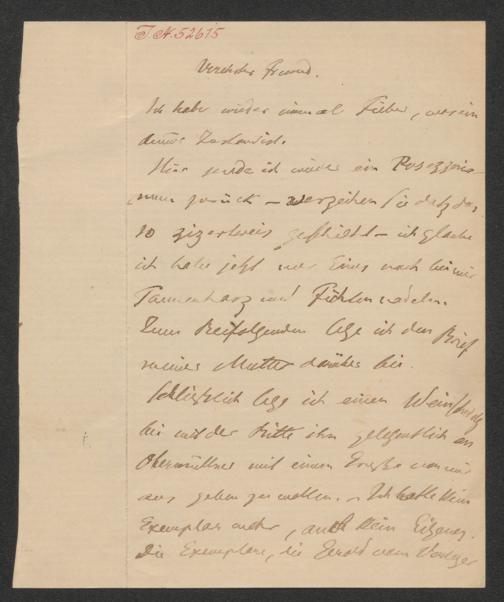 I.N. 52615
Verehrter Freund.
Ich habe wieder einmal Fieber, was ein
Zustand ist.
Hier sende ich wieder ein
zurück – verzeihen Sie daß das
so geschieht – ich glaube
ich habe jetzt nur Eines noch bei mir
Tannenharz und Fichtennadeln.
Zum Beifolgenden lege ich den Brief
meiner Mutter darüber bei.
Schließlich lege ich einen
bei mit der Bitte ihn gelegentlich an
Obermüllner mit einem Gruße von mir
aus geben zu wollen. – Ich habe kein
Exemplar mehr, auch kein Eigenes.
Die Exemplare, die Gerold vom Verleger